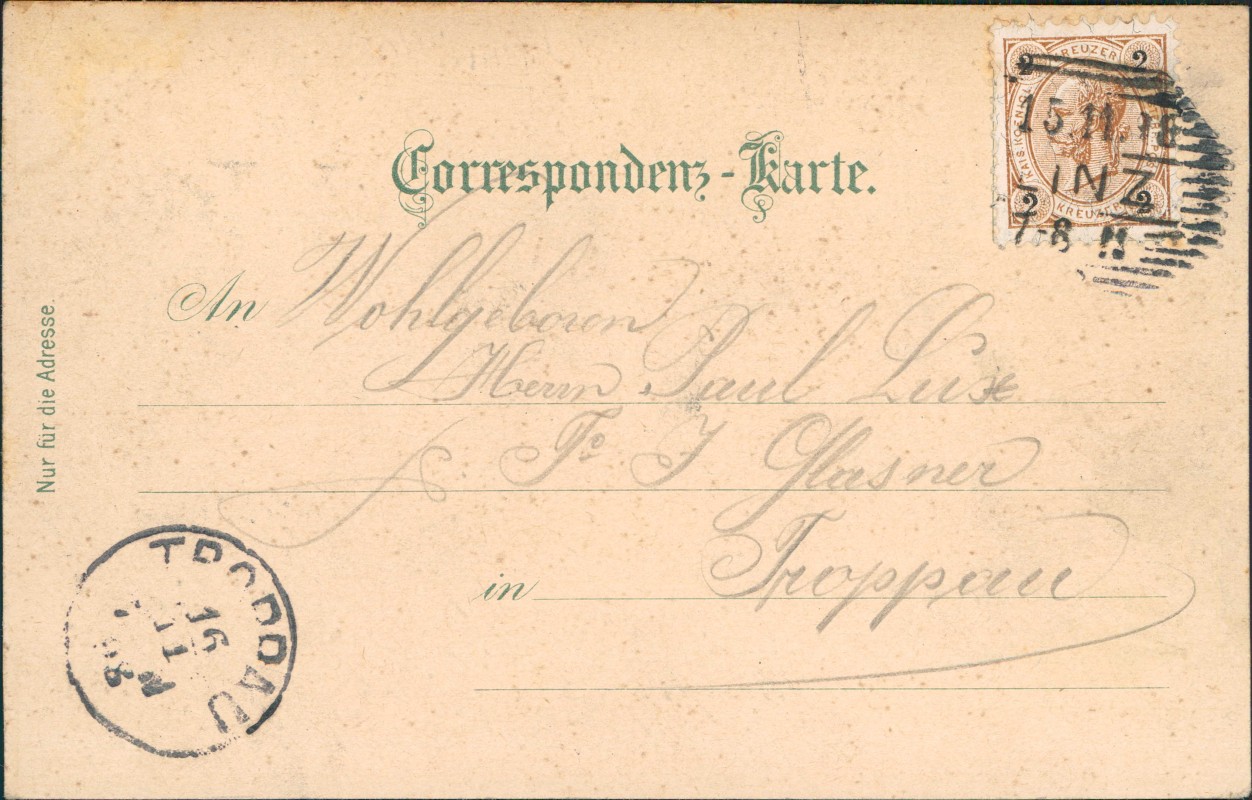 Correspondenz-Karte.
2 KREUZER 2
15 11 98
INZ
2 KREUZER 2
7-8 N
An Wohlgeboren
Herrn Paul Lux
Fa J Glasner
in Troppau
Nur für die Adresse.
TROPPAU
16
11
98